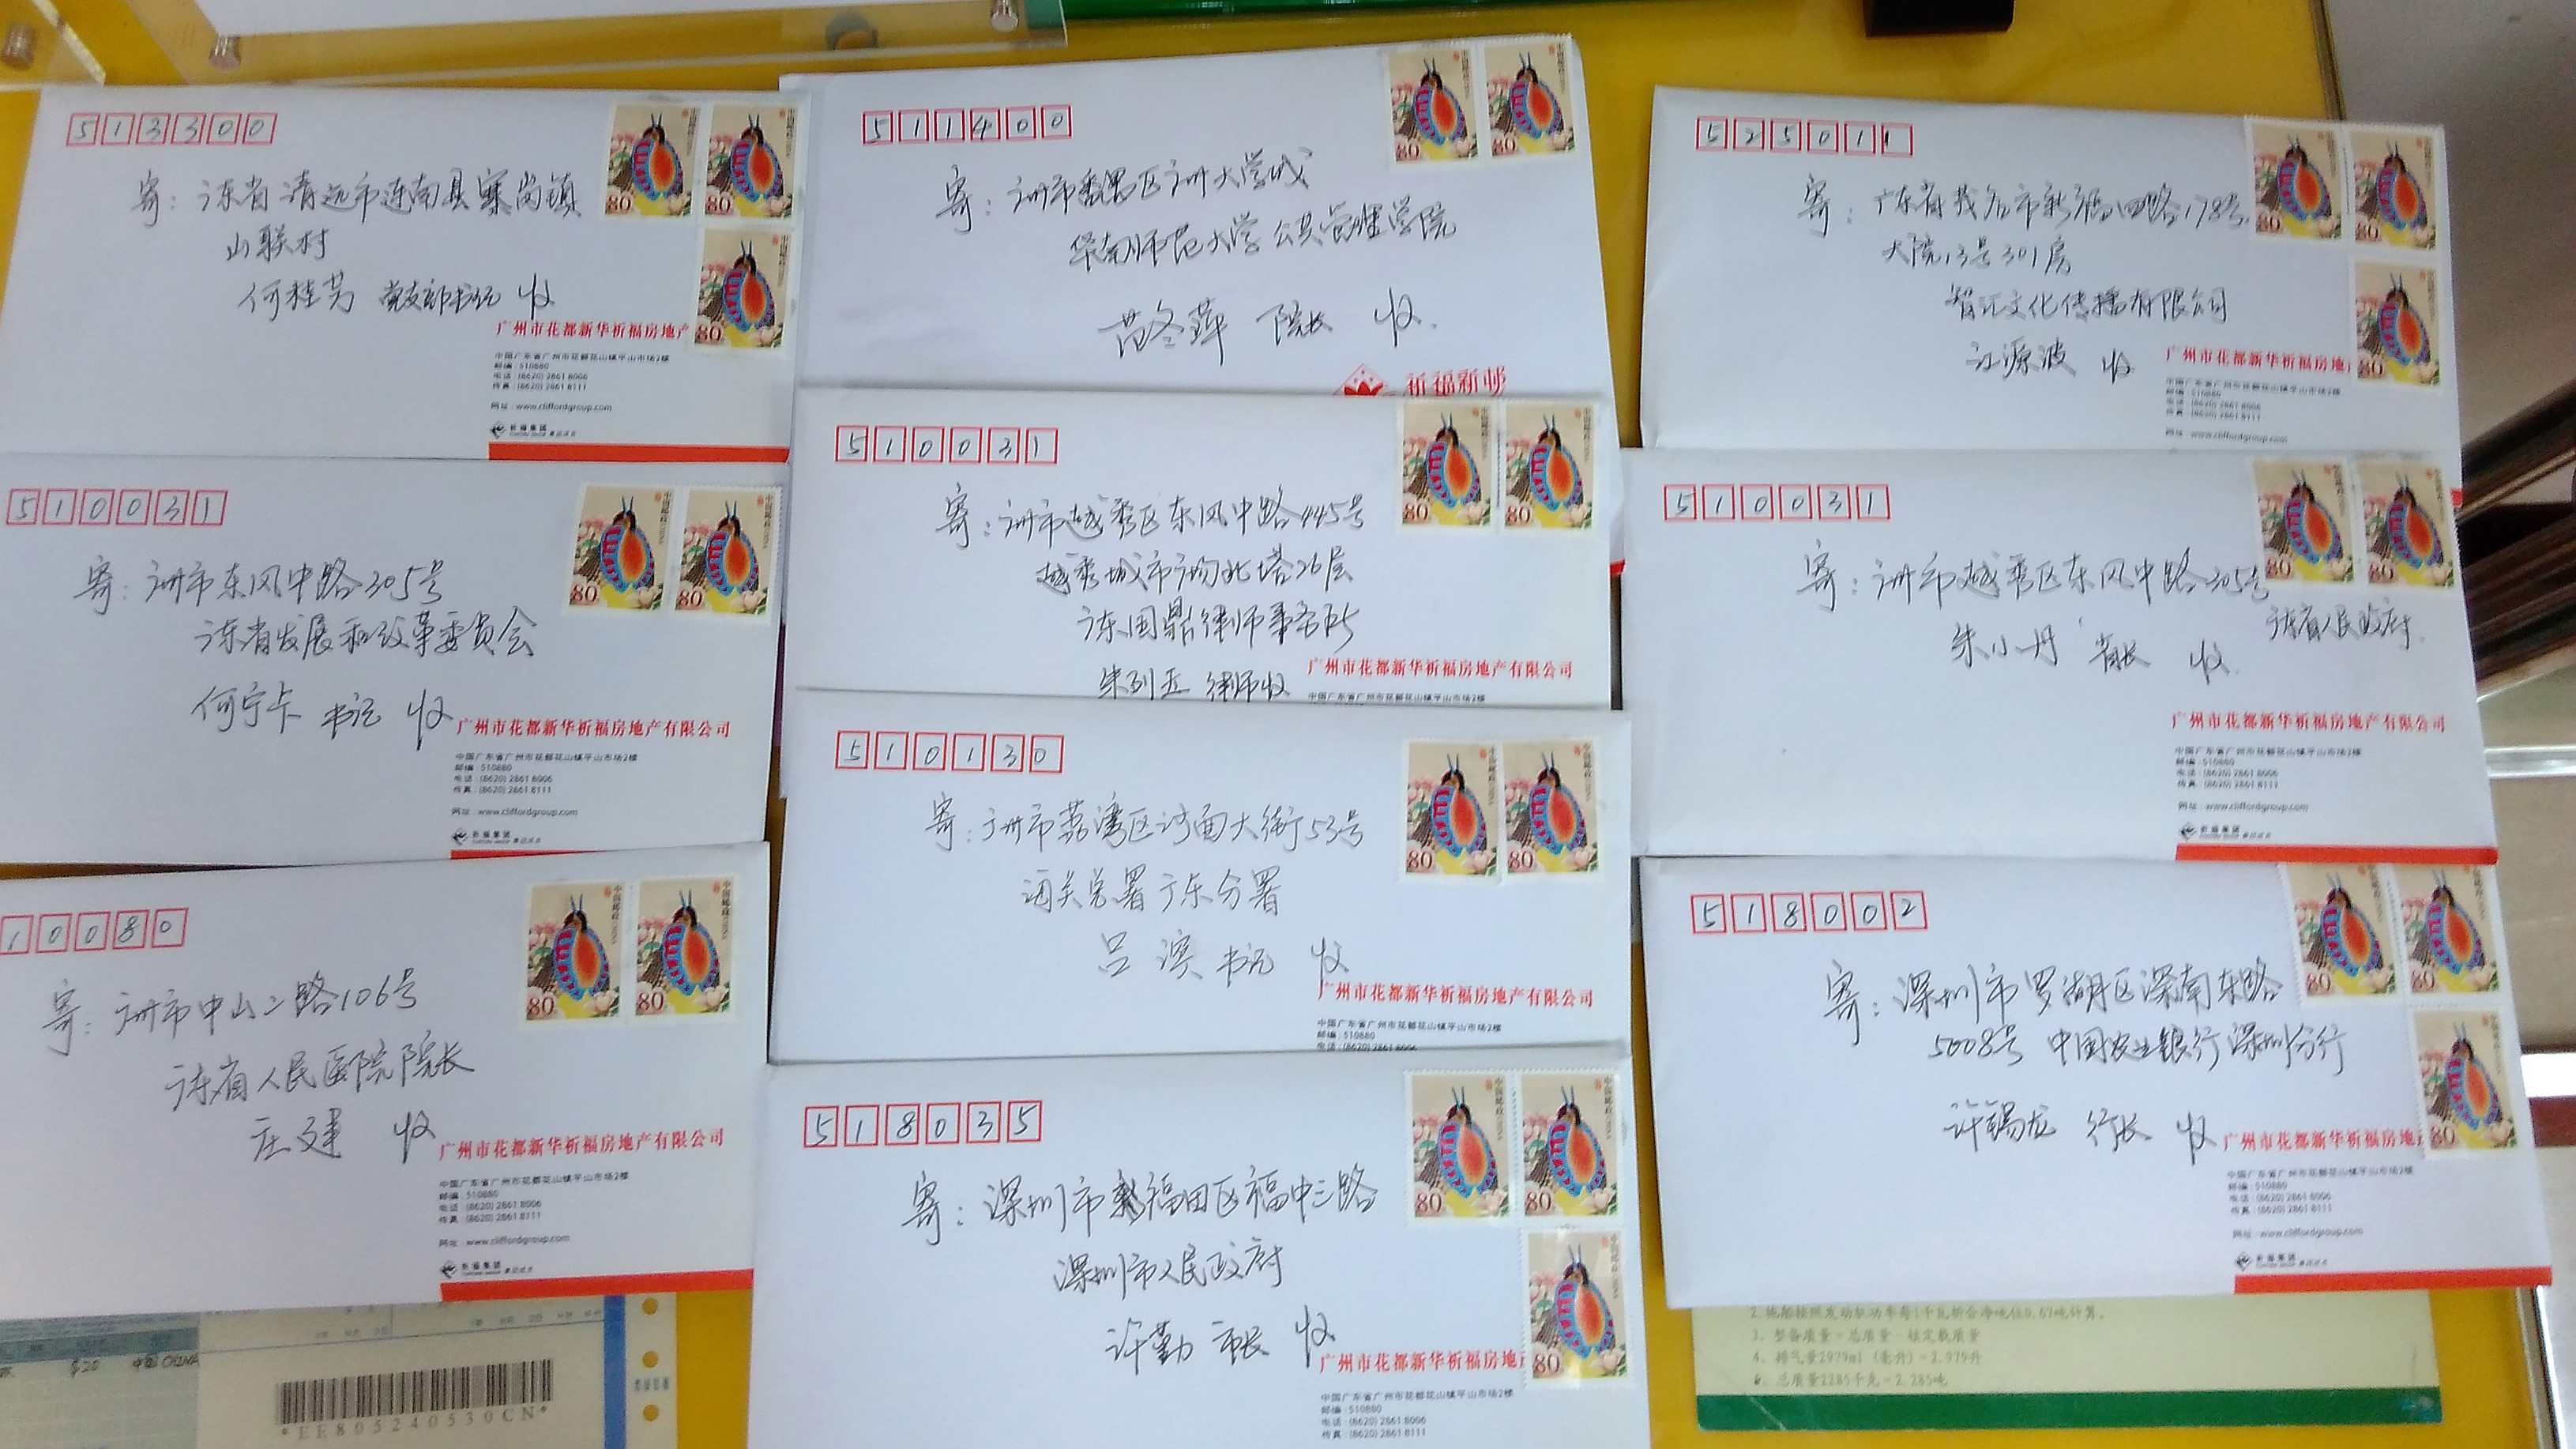 513300
寄：广东省清远市连南县寨岗镇
山联村
何桂芳 党支部书记 收
广州市花都新华祈福房地产
中国广东省广州市花都花山镇平山市场2楼
邮编：510880
电话：(8620) 2861 8006
传真：(8620) 2861 8111
网址：www.cliffordgroup.com
祈福集团
80
80
80
510031
寄：广州市东风中路305号
广东省发展和改革委员会
何宁卡 书记 收
广州市花都新华祈福房地产有限公司
中国广东省广州市花都花山镇平山市场2楼
邮编：510880
电话：(8620) 2861 8006
传真：(8620) 2861 8111
网址：www.cliffordgroup.com
祈福集团
80
80
10080
寄：广州市中山二路106号
广东省人民医院院长
庄建 收
广州市花都新华祈福房地产有限公司
中国广东省广州市花都花山镇平山市场2楼
邮编：510880
电话：(8620) 2861 8006
传真：(8620) 2861 8111
网址：www.cliffordgroup.com
祈福集团
80
80
中国 CHINA
*EE805240530CN*
511400
寄：广州市番禺区广州大学城
华南师范大学公共管理学院
范冬萍 院长 收
祈福新邨
80
80
510031
寄：广州市越秀区东风中路445号
越秀城市广场北塔26层
广东国鼎律师事务所
朱列玉 律师收
广州市花都新华祈福房地产有限公司
中国广东省广州市花都花山镇平山市场2楼
80
80
510130
寄：广州市荔湾区沙面大街53号
海关总署广东分署
吕滨 书记 收
广州市花都新华祈福房地产有限公司
中国广东省广州市花都花山镇平山市场2楼
邮编：510880
电话：(8620) 2861 8006
80
80
518035
寄：深圳市福田区福中三路
深圳市人民政府
许勤 市长 收
广州市花都新华祈福房地
中国广东省广州市花都花山镇平山市场2楼
邮编：510880
电话：(8620) 2861 8006
传真：(8620) 2861 8111
80
80
80
525011
寄：广东省茂名市新福四路178号
大院13号301房
智汇文化传播有限公司
江源波 收
广州市花都新华祈福房地
中国广东省广州市花都花山镇平山市场2楼
邮编：510880
电话：(8620) 2861 8006
传真：(8620) 2861 8111
网址：www.cliffordgroup.com
80
80
80
510031
寄：广州市越秀区东风中路305号
广东省人民政府
朱小丹 省长 收
广州市花都新华祈福房地产有限公司
中国广东省广州市花都花山镇平山市场2楼
邮编：510880
电话：(8620) 2861 8006
传真：(8620) 2861 8111
网址：www.cliffordgroup.com
祈福集团
80
80
518002
寄：深圳市罗湖区深南东路
5008号 中国农业银行深圳分行
许锡龙 行长 收
广州市花都新华祈福房地
中国广东省广州市花都花山镇平山市场2楼
邮编：510880
电话：(8620) 2861 8006
传真：(8620) 2861 8111
网址：www.cliffordgroup.com
祈福集团
80
80
80
2.拖船按照发动机功率每1千瓦折合净吨位0.67吨计算。
3、整备质量=总质量－核定载质量
4、排气量2979ml（毫升）=2.979升
6、总质量2285千克=2.285吨